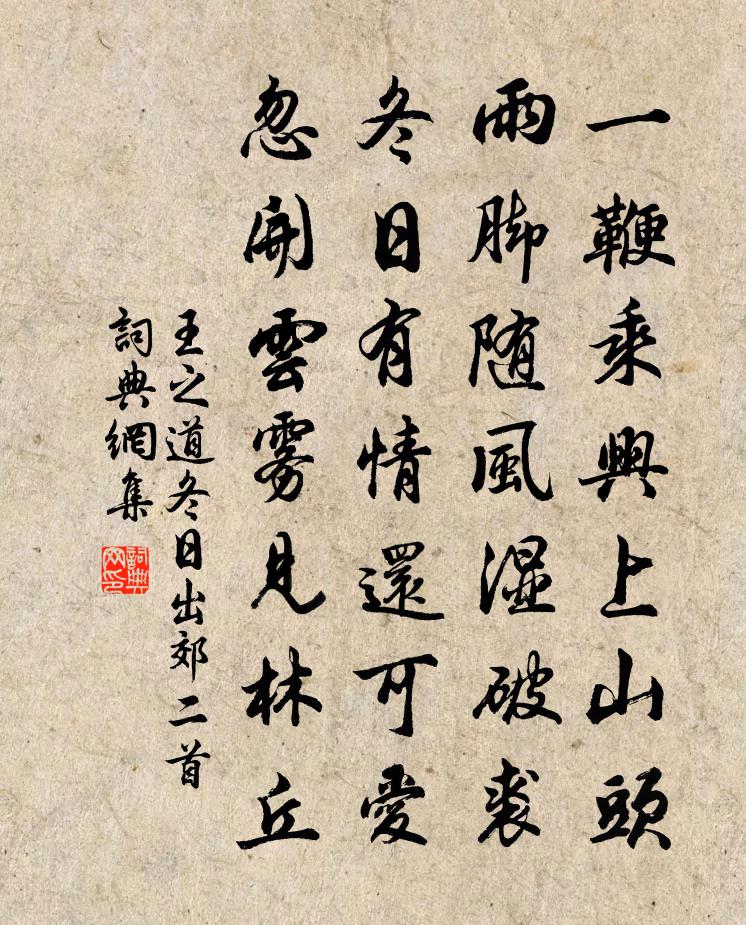 一鞭乘興上山頭
雨脚随風湿破裘
冬日有情還可愛
忽開雲雾見林丘
王之道冬日出郊二首
詞典網集
詞典网印